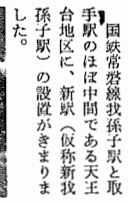 国鉄常磐線我孫子駅と取
手駅のほぼ中間である天王
台地区に、新駅（仮称新我
孫子駅）の設置がきまりま
した。